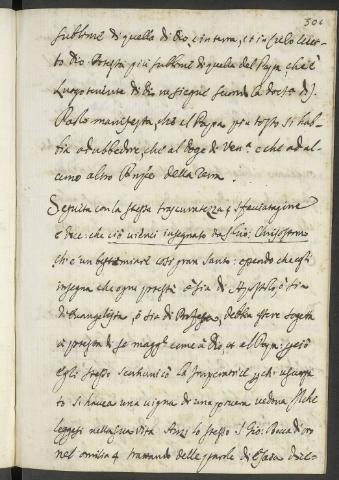 301
sublime di quella di Dio, in terra, et in Cielo
to Dio. Potestà più sublime di quella del Papa, che è
Luogotenente di Dio ne siegue secondo la dott.a di S.
Paolo manifesta, che el Papa più tosto si hab-
bia ad ubbedire, che al Doge di Ven.a e che ad al-
cuno altro Prencipe della Terra.
Seguita con la stessa trascuratezza, e sfacciatagine
e dice: che ciò vienci insegnato da S. Gio: Chrisostomo
ch'è un bestemiare così gran Santo: essendo che egli
insegna che ogni potestà ò sia di Apostolo, ò sia
di Evangelista, ò sia di Profeta, debba essere sogeta
a potestà di se magg.e come à Dio, et al Papa; perciò
egli stesso scommunicò la Imperatrice, perche usurpa-
to si haveva una vigna di una povera vedova come
leggesi nella sua Vita. Anzi lo stesso S. Gio: Bocca di oro
nel omilia 4 trattando delle parole di Esaia dice-